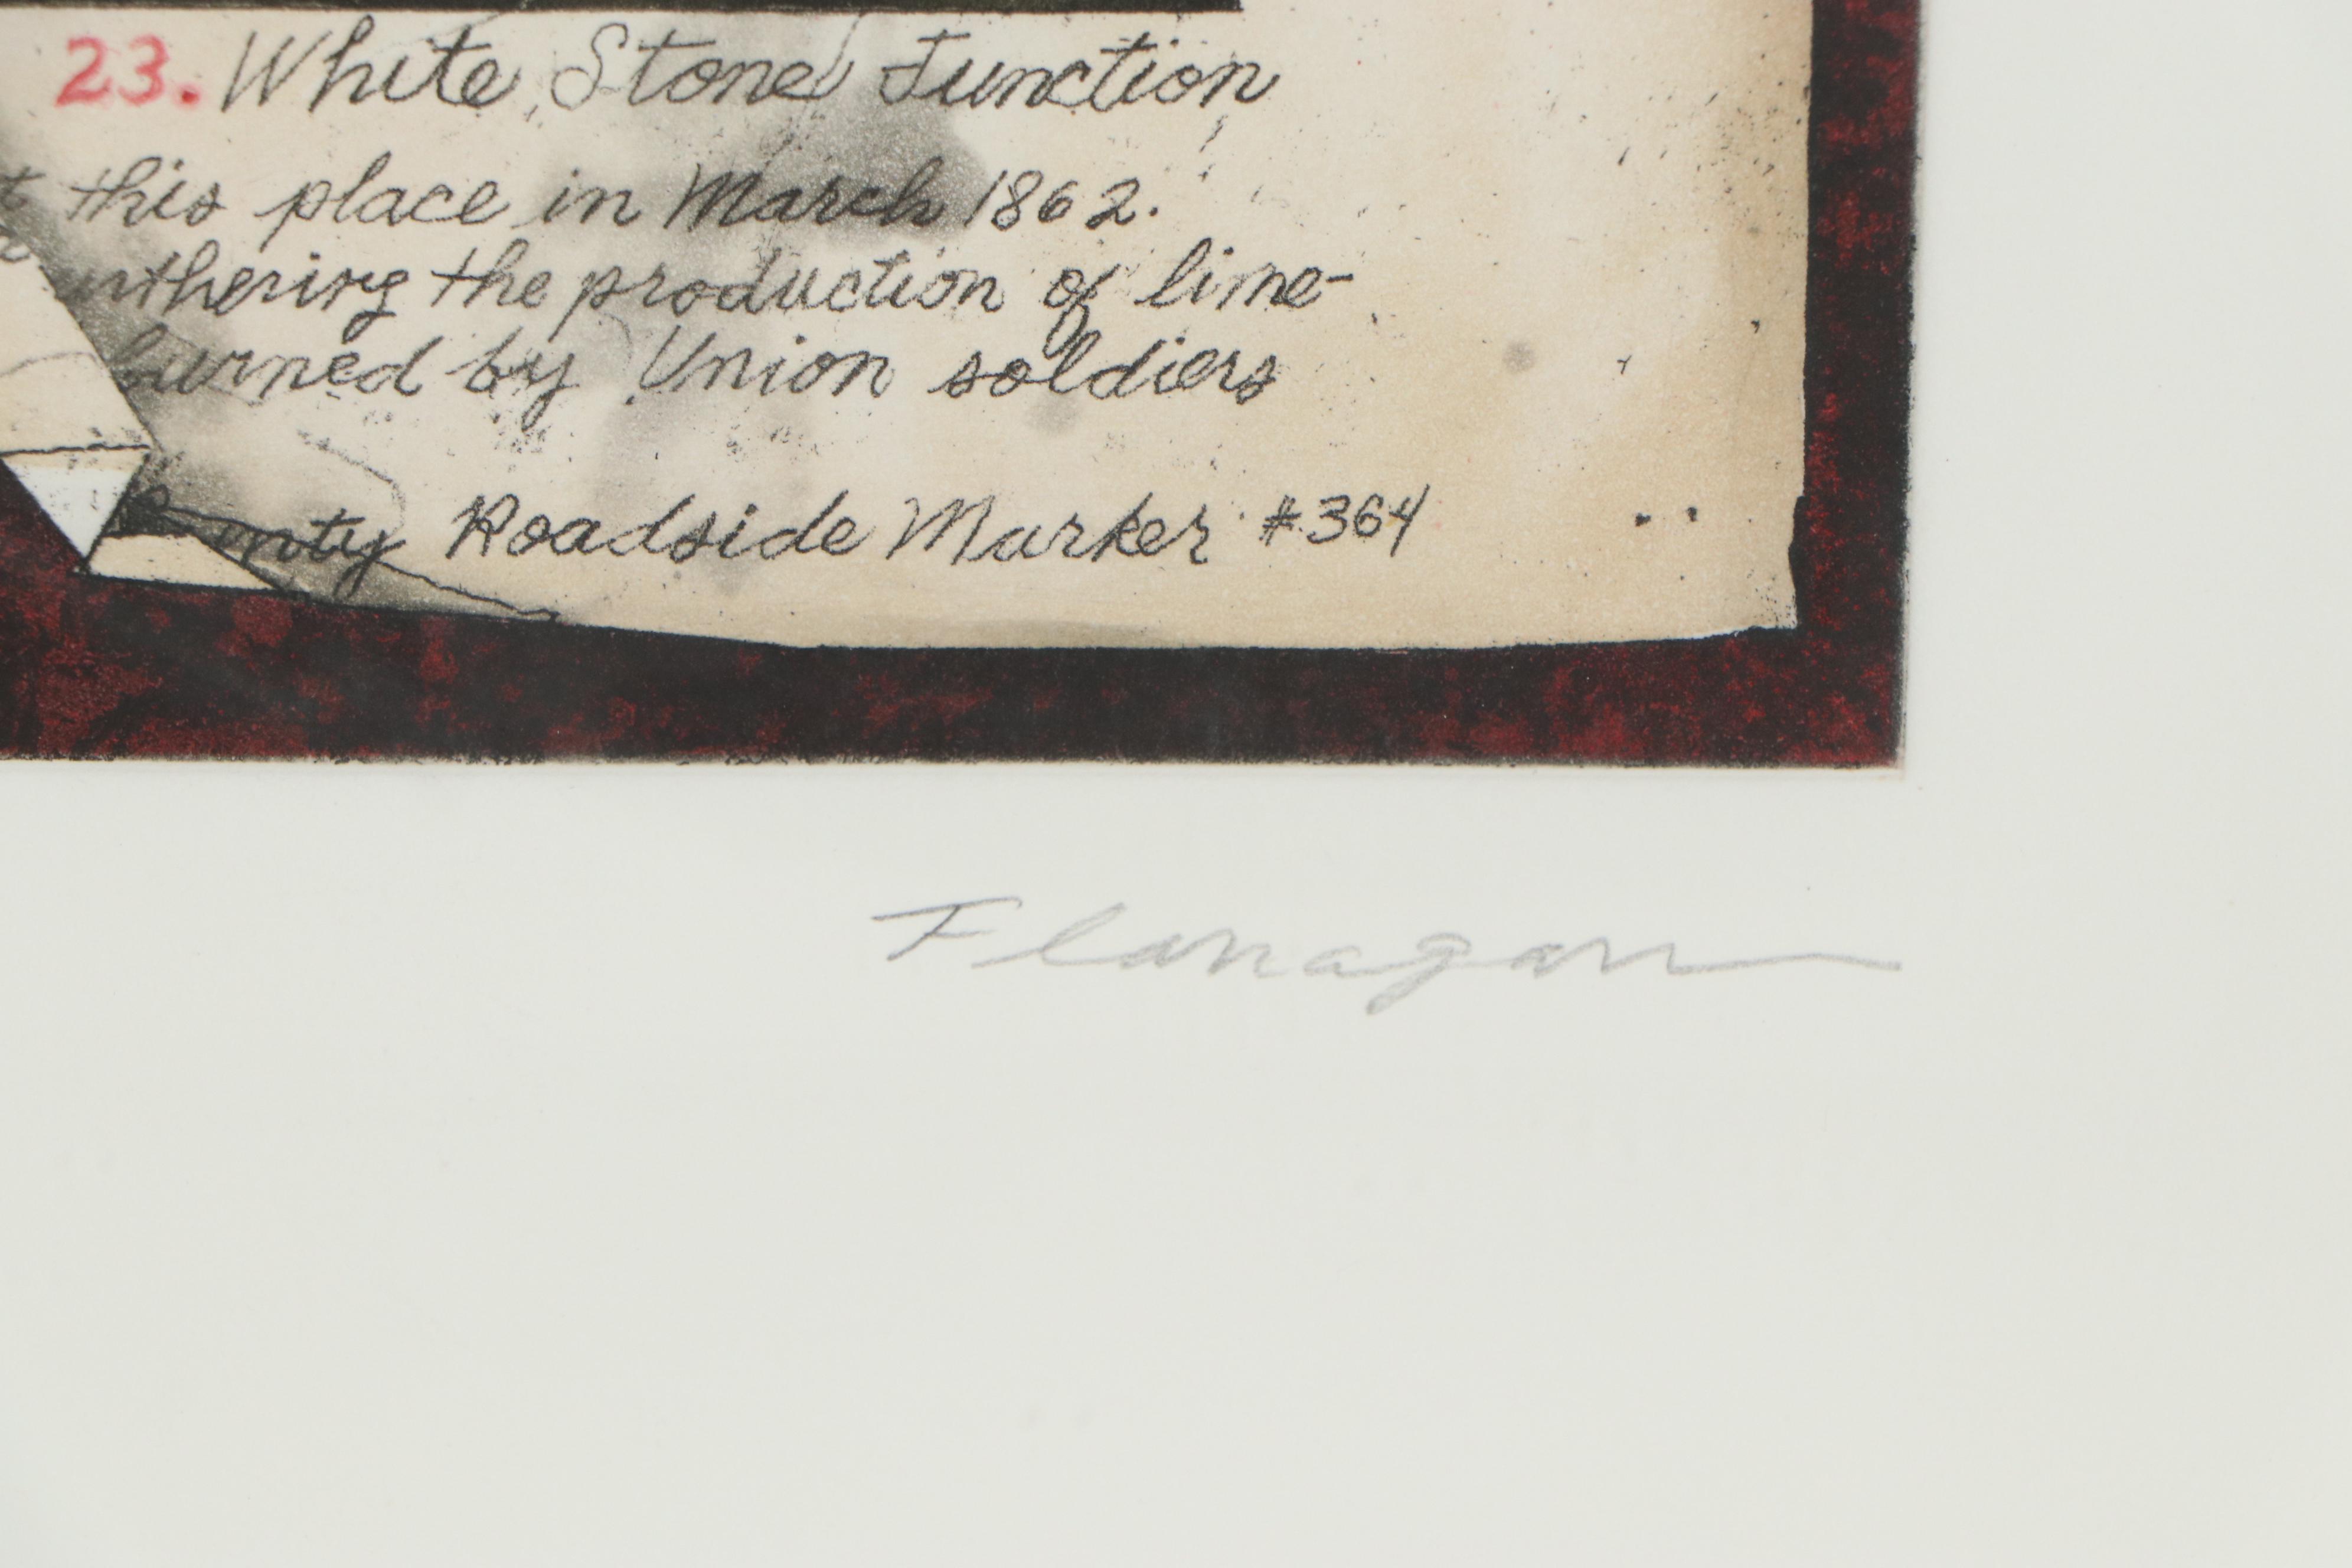 23. White Stone Junction
this place in March 1862.
urthering the production of lime-
burned by Union soldiers
unty Roadside Marker #364
Flanagan